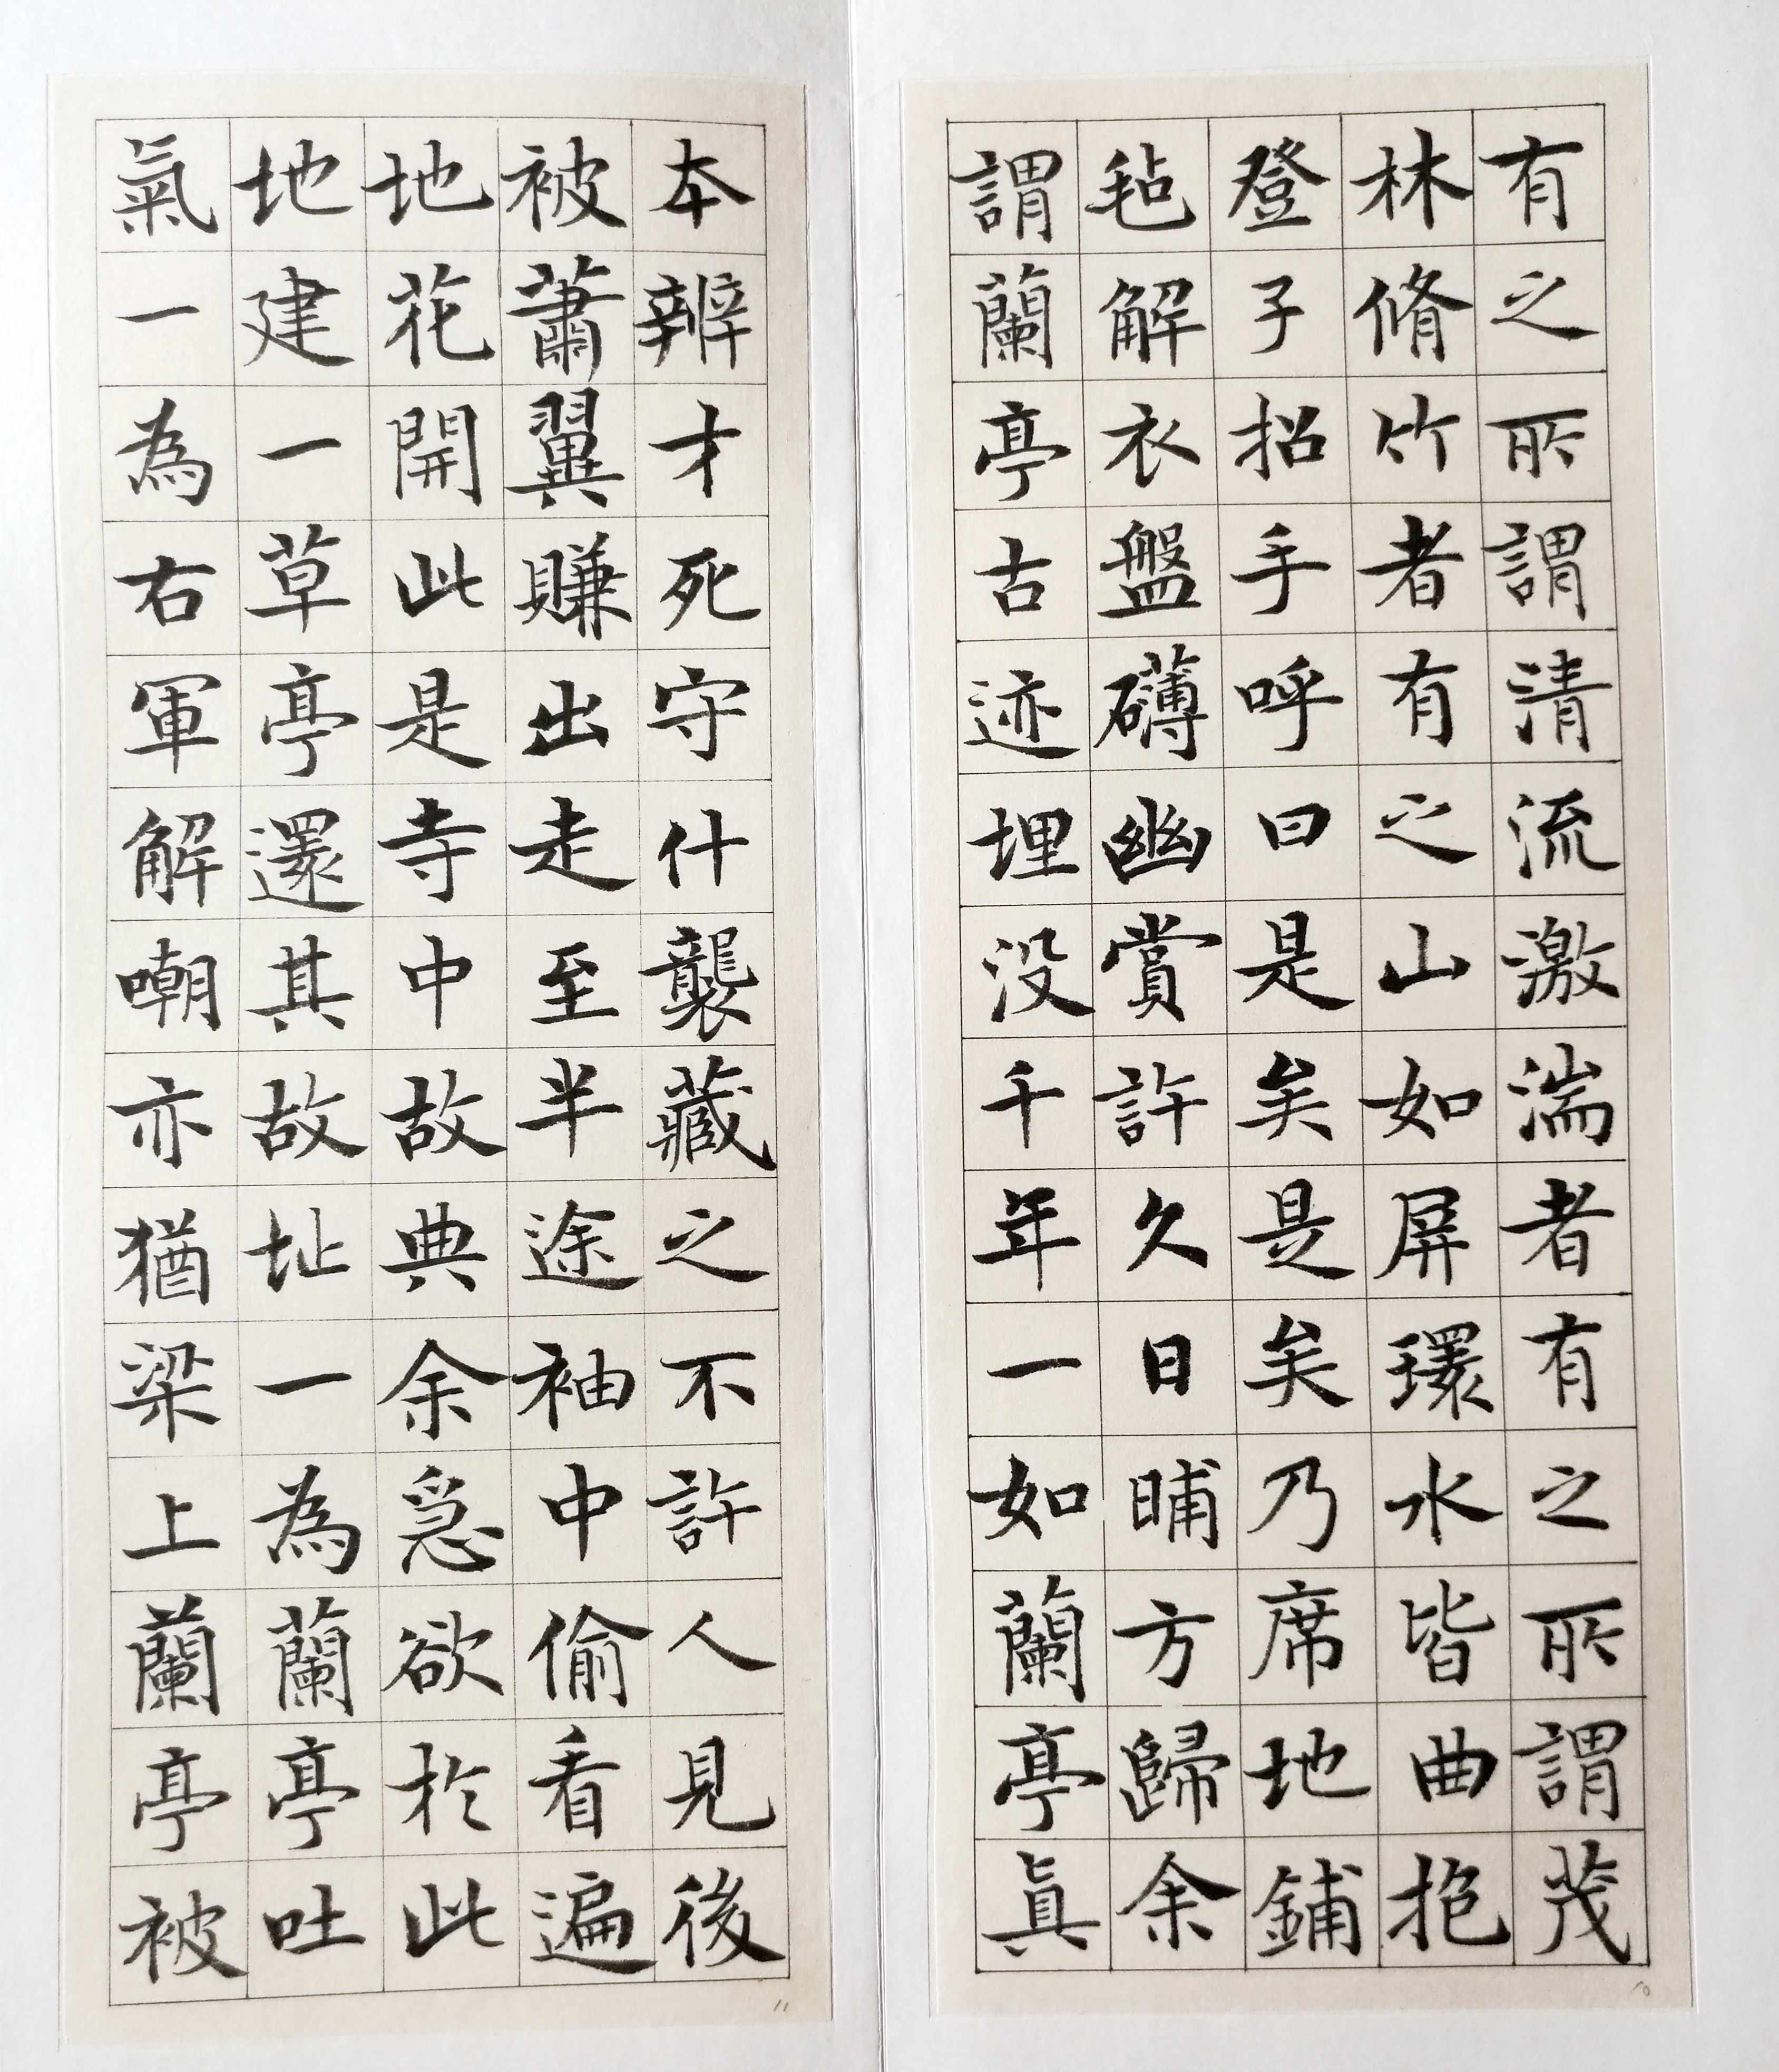 有之所謂清流激湍者有之所謂茂
林脩竹者有之山如屏環水皆曲抱
登子招手呼曰是矣是矣乃席地鋪
毡解衣盤礴幽賞許久日晡方歸余
謂蘭亭古迹埋没千年一如蘭亭真
本辨才死守什襲藏之不許人見後
被蕭翼賺出走至半途袖中偷看遍
地花開此是寺中故典余急欲於此
地建一草亭還其故址一為蘭亭吐
氣一為右軍解嘲亦猶梁上蘭亭被
10
11